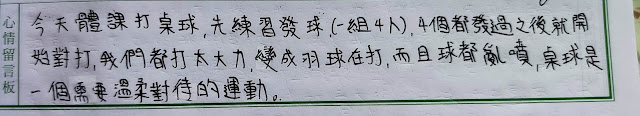 心情留言板
今天體課打桌球,先練習發球(一組4人),4個都發過之後就開
始對打,我們都打太大力,變成羽球在打,而且球都亂噴,桌球是
一個需要溫柔對待的運動。